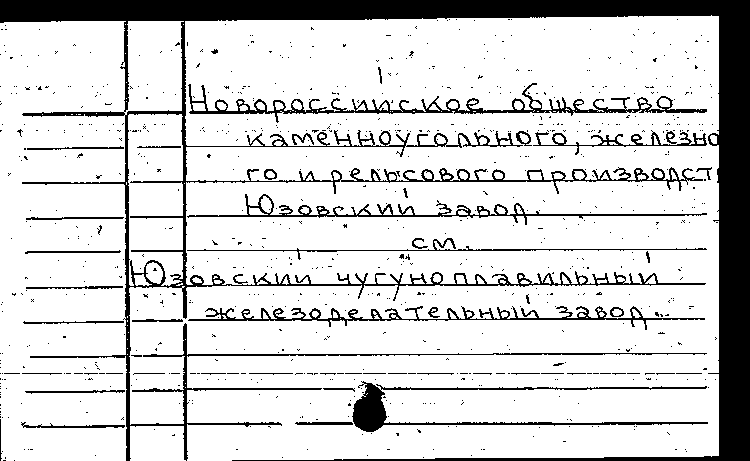 Новороссийское общество
каменноугольного, железно
го и рельсового производст
Юзовский завод.
см.
Юзовский чугуноплавильный
железоделательный завод.